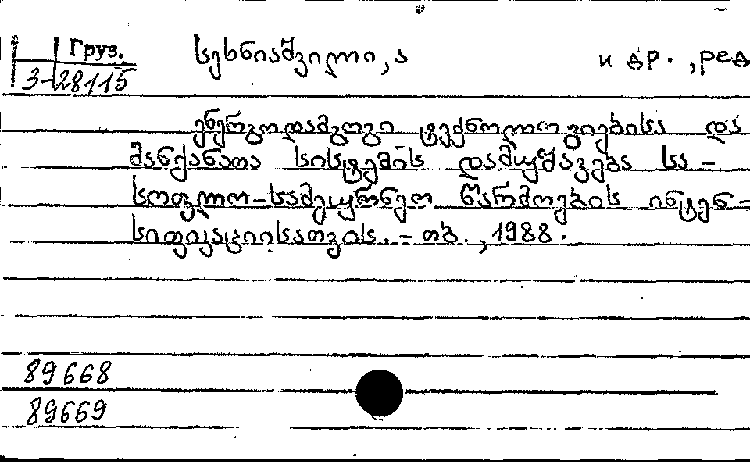 Груз. სეხნიაშვილი, ა и др., ред
3-28115
ენერგოდამზოგი ტექნოლოგიებისა და
მანქანათა სისტემის დამუშავება სა-
სოფლო-სამეურნეო წარმოების ინტენ-
სიფიკაციისათვის. - თბ., 1988.
89668
89669